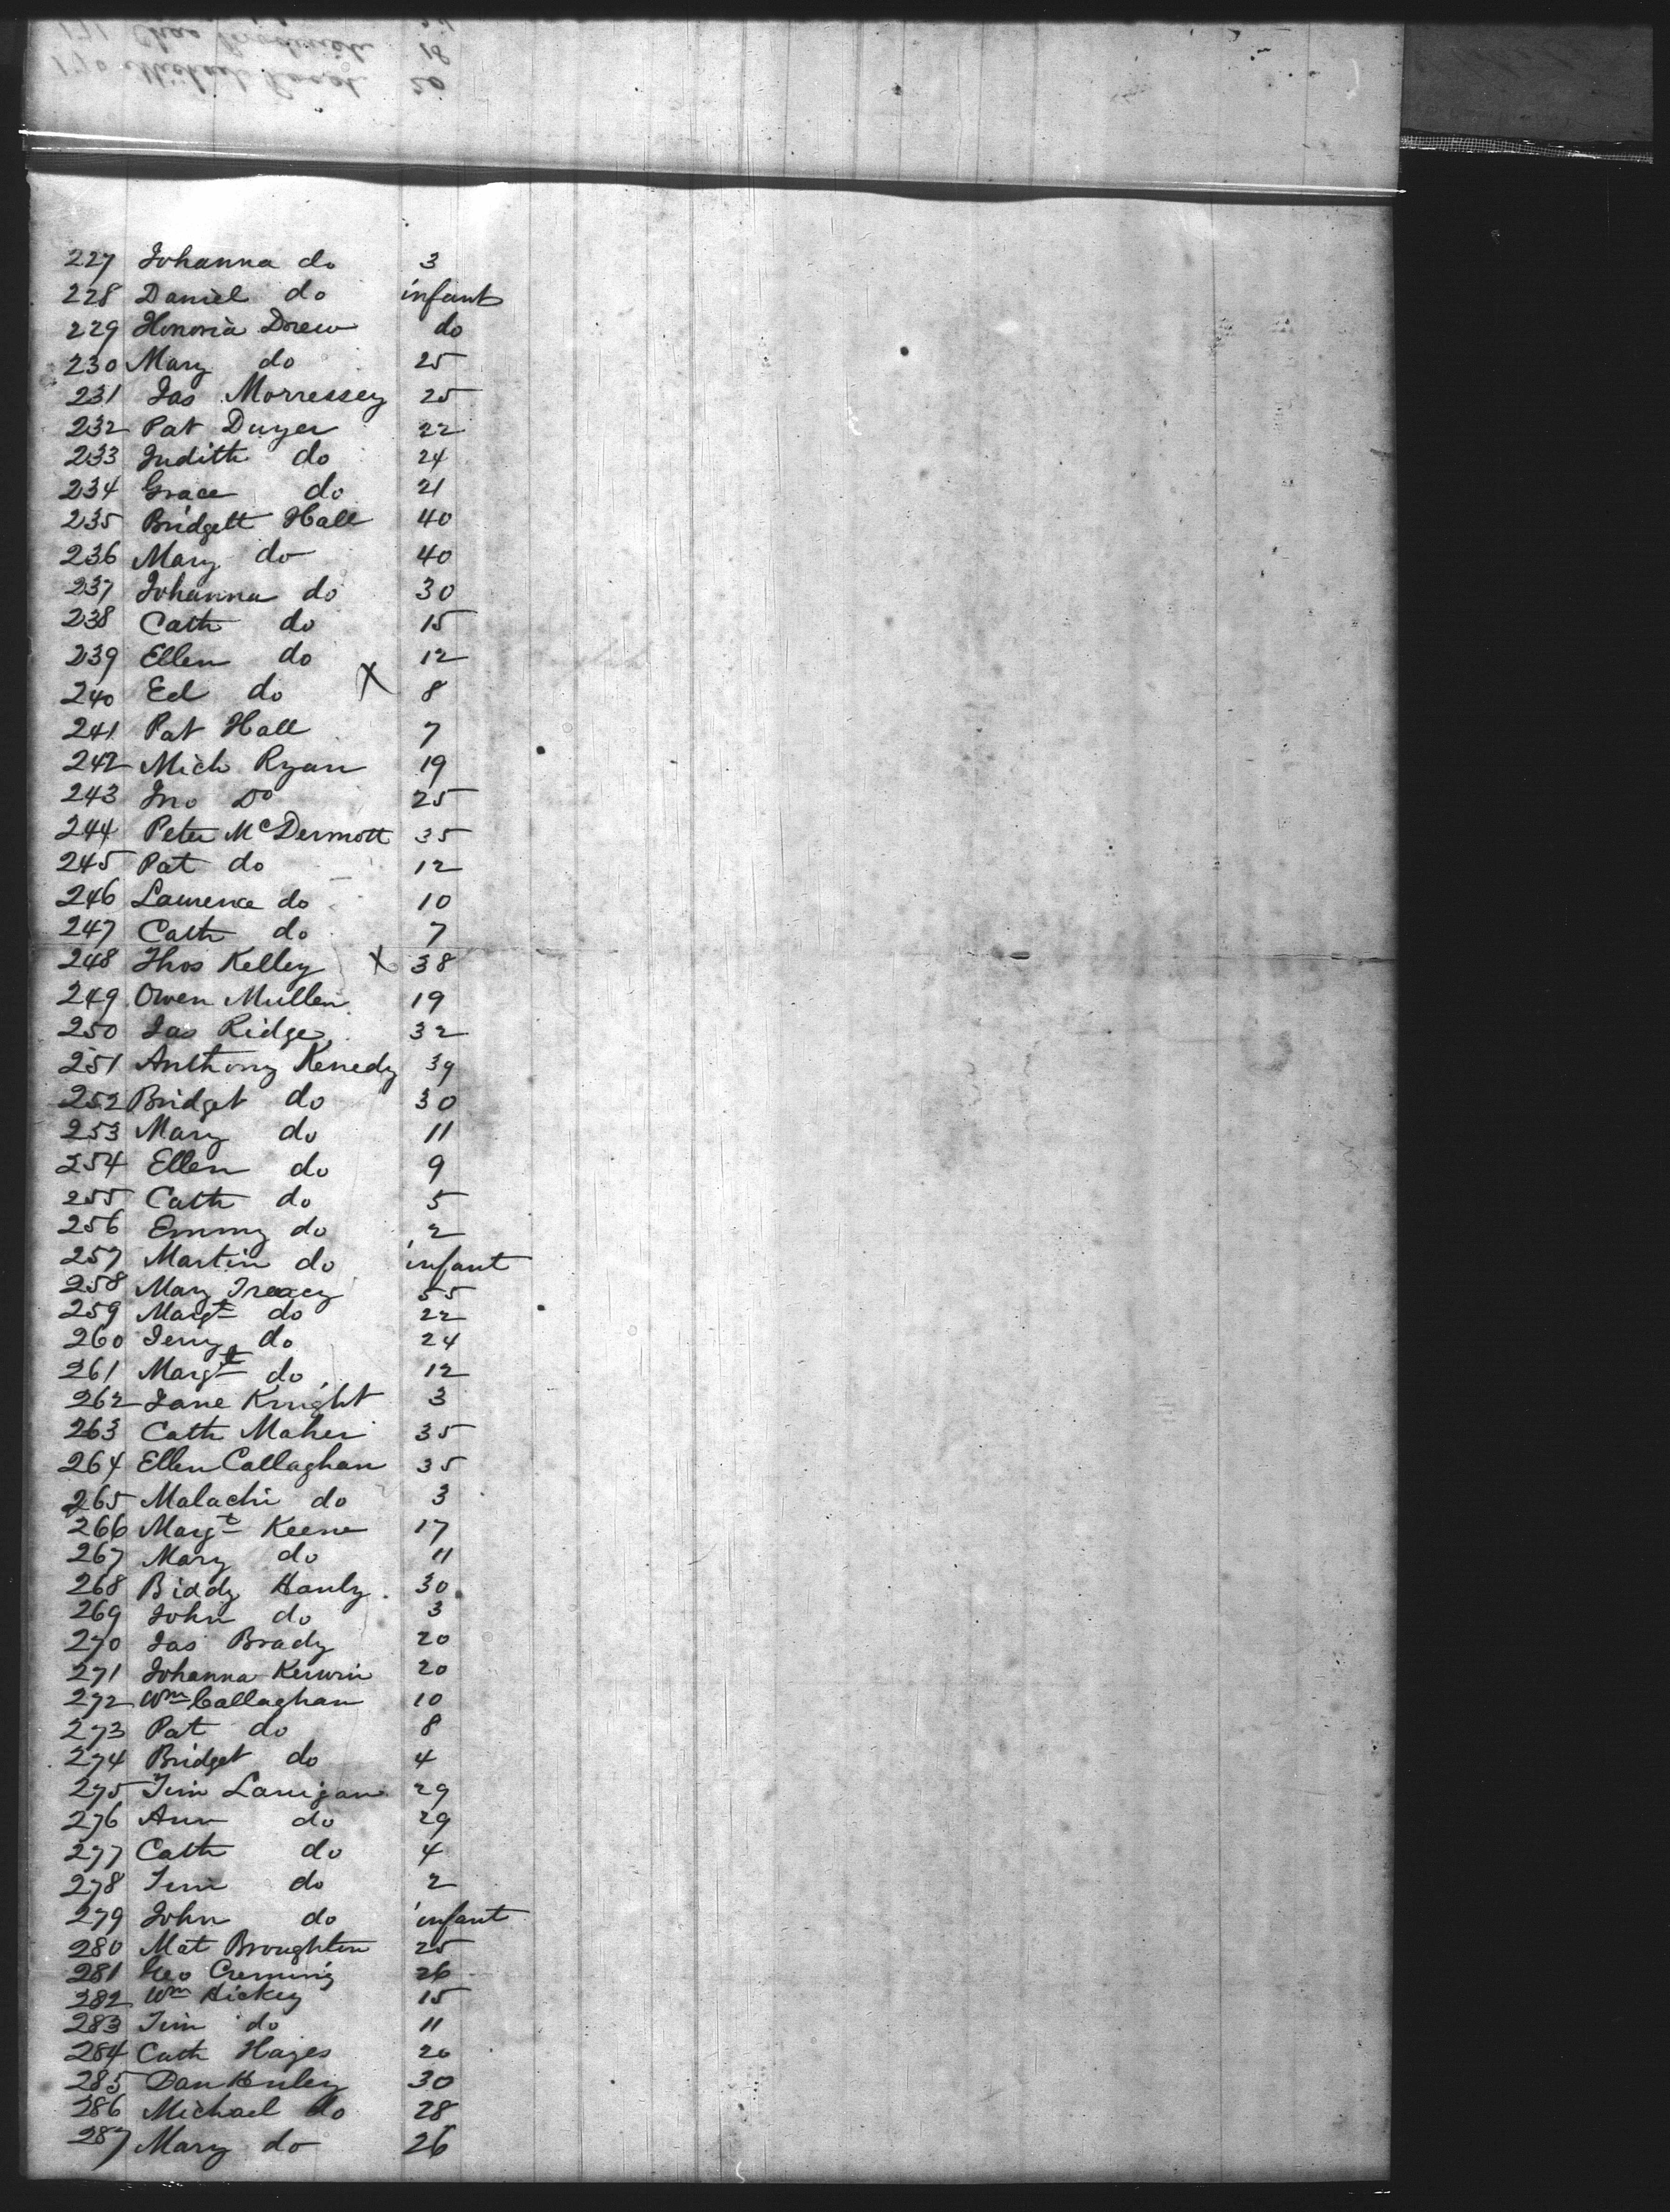 227 Johanna do 3
228 Daniel do infant
229 Honoria Drew do
230 Mary do 25
231 Jas Morressey 25
232 Pat Dwyer 22
233 Judith do 24
234 Grace do 21
235 Bridgett Hall 40
236 Mary do 40
237 Johanna do 30
238 Cath do 15
239 Ellen do 12
240 Ed do X 8
241 Pat Hall 7
242 Mich Ryan 19
243 Jno Do 25
244 Peter McDermott 35
245 Pat do 12
246 Laurence do 10
247 Cath do 7
248 Thos Kelley X 38
249 Owen Mullen 19
250 Jas Ridge 32
251 Anthony Kenedy 39
252 Bridget do 30
253 Mary do 11
254 Ellen do 9
255 Cath do 5
256 Emmy do 2
257 Martin do infant
258 Mary Treacy 55
259 Margt do 22
260 Jerry do 24
261 Margt do 12
262 Jane Knight 3
263 Cath Maher 35
264 Ellen Callaghan 35
265 Malachi do 3
266 Margt Keene 17
267 Mary do 11
268 Biddy Hanly 30
269 John do 3
270 Jas Brady 20
271 Johanna Kerwin 20
272 Wm Callaghan 10
273 Pat do 8
274 Bridget do 4
275 Tim Lanigan 29
276 Ann do 29
277 Cath do 4
278 Tim do 2
279 John do infant
280 Mat Broughton 25
281 Geo Creming 26
282 Wm Hickey 15
283 Tim do 11
284 Cath Hayes 20
285 Dan 30
286 Michael do 28
287 Mary do 26